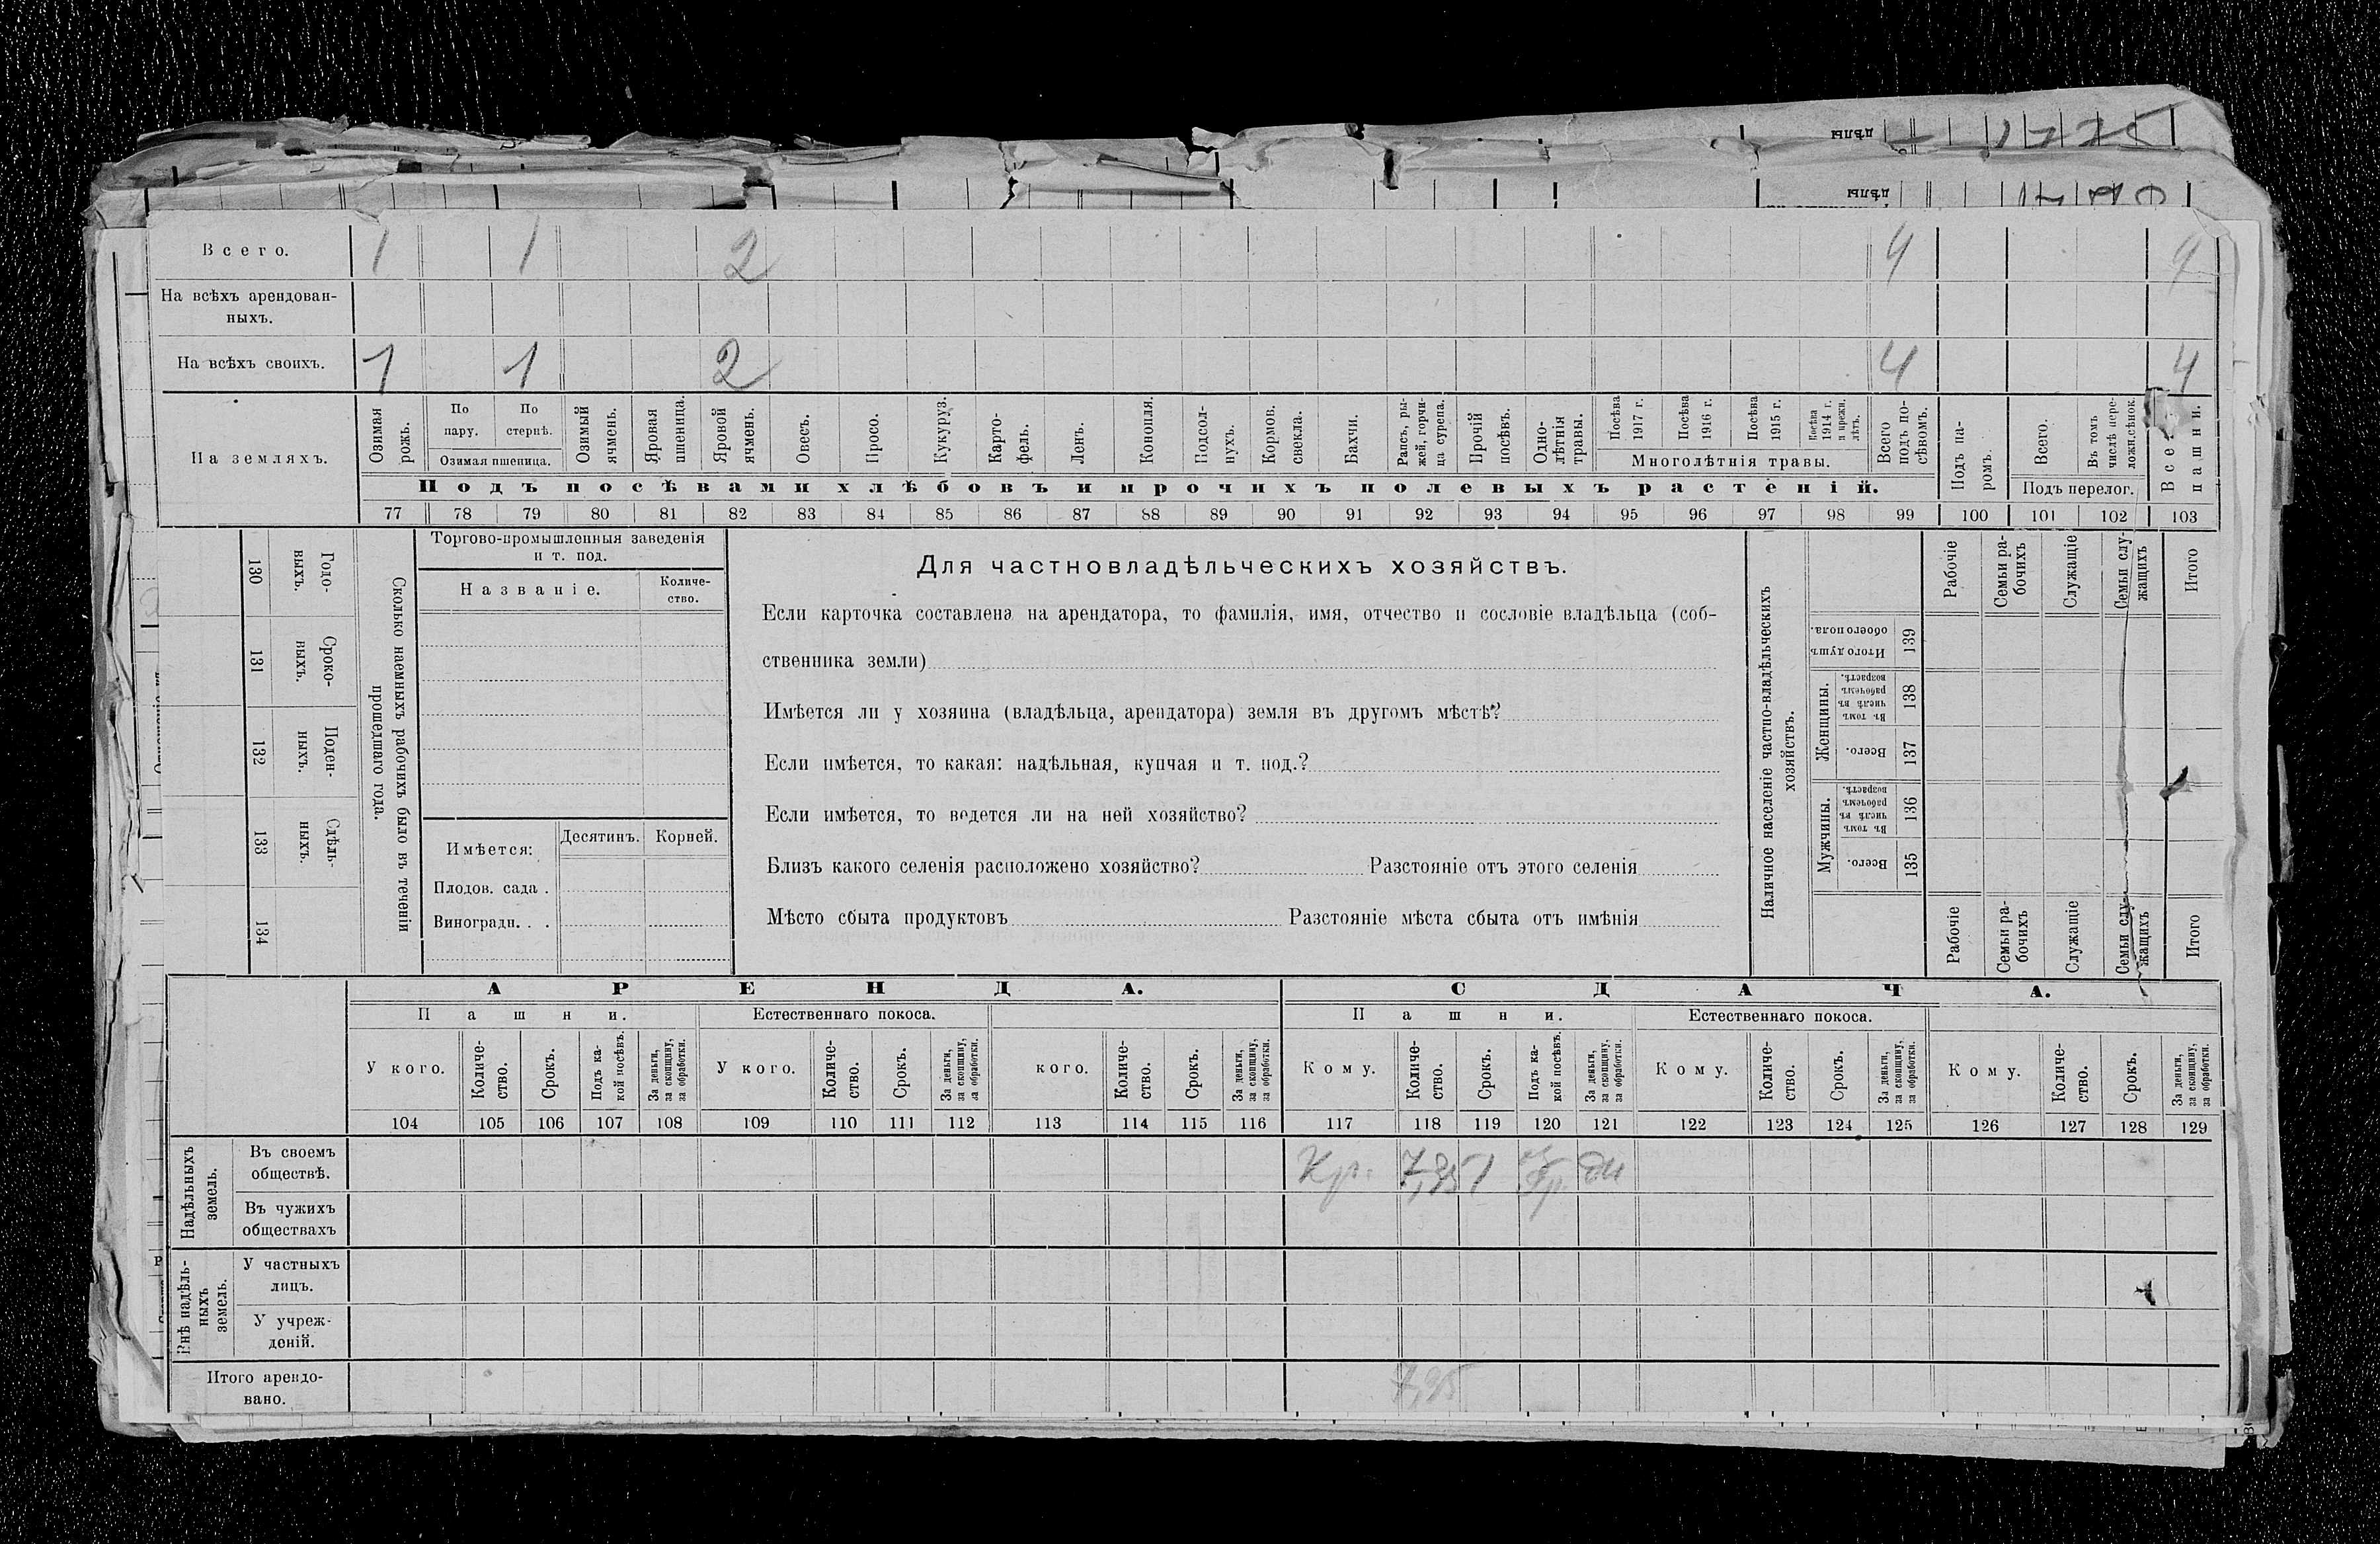 Всего. 1 1 2 4 4
На всѣхъ арендован-
ныхъ.
На всѣхъ своихъ. 1 1 2 4 4
На земляхъ.
Озимая рожь.
По пару.
По стернѣ.
Озимая пшеница.
Озимый ячмень.
Яровая пшеница.
Яровой ячмень.
Овесъ.
Просо.
Кукуруз.
Карто-
фель.
Ленъ.
Конопля.
Подсол-
нухъ.
Кормов. свекла.
Бахчи.
Рапсъ, ры-
жей, горчи-
ца сурепа.
Прочій посѣвъ.
Одно-
лѣтнія
травы.
Посѣва 1917 г.
Посѣва 1916 г.
Посѣва 1915 г.
Посѣва 1914 г. и прежн. лѣтъ.
Многолѣтнія травы.
Всего подъ по-
сѣвомъ.
Подъ посѣвами хлѣбовъ и прочихъ полевыхъ растеній.
Подъ па-
ромъ.
Всего.
Въ томъ числѣ пере-
ложн.сѣнок.
Подъ перелог.
пашни.
77 78 79 80 81 82 83 84 85 86 87 88 89 90 91 92 93 94 95 96 97 98 99 100 101 102 103
Годо-
выхъ.
130
Сроко-
ныхъ.
131
Поден-
ныхъ.
132
Сдѣль-
ныхъ.
133
134
Сколько наемныхъ рабочихъ было въ теченіи
прошедшаго года.
Торгово-промышленныя заведенія
и т. под.
Названіе.
Количе-
ство.
Имѣется:
Десятинъ.
Корней.
Плодов. сада .
Виноградн. . .
Для частновладѣльческихъ хозяйствъ.
Если карточка составлена на арендатора, то фамилія, имя, отчество и сословіе владѣльца (соб-
ственника земли)
Имѣется ли у хозяина (владѣльца, арендатора) земля въ другомъ мѣстѣ?
Если имѣется, то какая: надѣльная, купчая и т. под.?
Если имѣется, то ведется ли на ней хозяйство?
Близъ какого селенія расположено хозяйство? Разстояніе отъ этого селенія
Мѣсто сбыта продуктовъ Разстояніе мѣста сбыта отъ имѣнія
Наличное населеніе частно-владѣльческихъ
хозяйствъ.
Рабочіе
Семьи ра-
бочихъ
Служащіе
Семьи слу-
жащихъ
Итого
Итого душъ
обоего пола.
139
Женщины.
Въ томъ
числѣ въ
рабочемъ
возрастѣ.
138
Всего.
137
Мужчины.
Въ томъ
числѣ въ
рабочемъ
возрастѣ.
136
Всего.
135
Рабочіе
Семьи ра-
бочихъ
Служащіе
Семьи слу-
жащихъ
Итого
АРЕНДА. СДАЧА.
Пашни. Естественнаго покоса. Пашни. Естественнаго покоса.
У кого.
Количе-
ство.
Срокъ.
Подъ ка-
кой посѣвъ.
За деньги,
за скопщину,
за обработки.
У кого.
Количе-
ство.
Срокъ.
За деньги,
за скопщину,
за обработки.
кого.
Количе-
ство.
Срокъ.
За деньги,
за скопщину,
за обработки.
Кому.
Количе-
ство.
Срокъ.
Подъ ка-
кой посѣвъ.
За деньги,
за скопщину,
за обработки.
Кому.
Количе-
ство.
Срокъ.
За деньги,
за скопщину,
за обработки.
Кому.
Количе-
ство.
Срокъ.
За деньги,
за скопщину,
за обработки.
104 105 106 107 108 109 110 111 112 113 114 115 116 117 118 119 120 121 122 123 124 125 126 127 128 129
Надѣльныхъ
земель.
Въ своемъ
обществѣ.
Кр. 7,95 1
Въ чужихъ
обществахъ
Внѣ надѣль-
ныхъ
земель.
У частныхъ
лицъ.
У учреж-
деній.
Итого арендо-
вано.
7,95